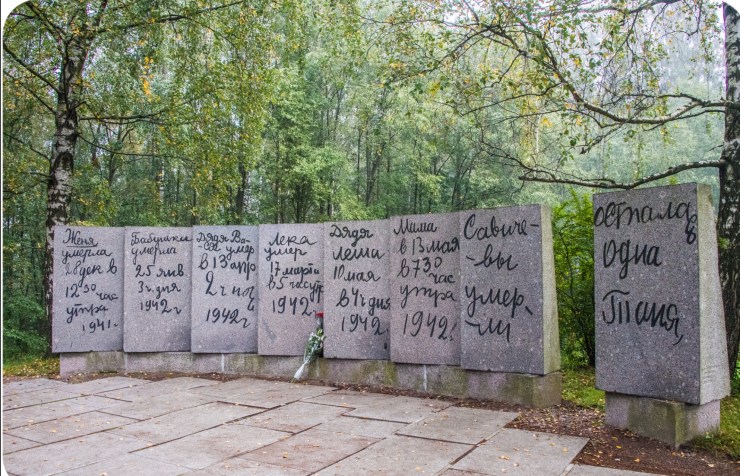 Женя
умерла
28 ден в
12 30 час
утра
1941 г
Бабушка
умерла
25 янв
3 ч дня
1942 г
Дядя Ва-
ся умер
в 13 апр
2 ч ноч
1942 г
Лека
умер
17 марта
в 5 час утр
1942 г
Дядя
Леша
10 мая
в 4 ч дня
1942
Мама
в 13 мая
в 7 30
час
утра
1942 г
Савиче-
вы
умер-
ли
осталась
одна
Таня